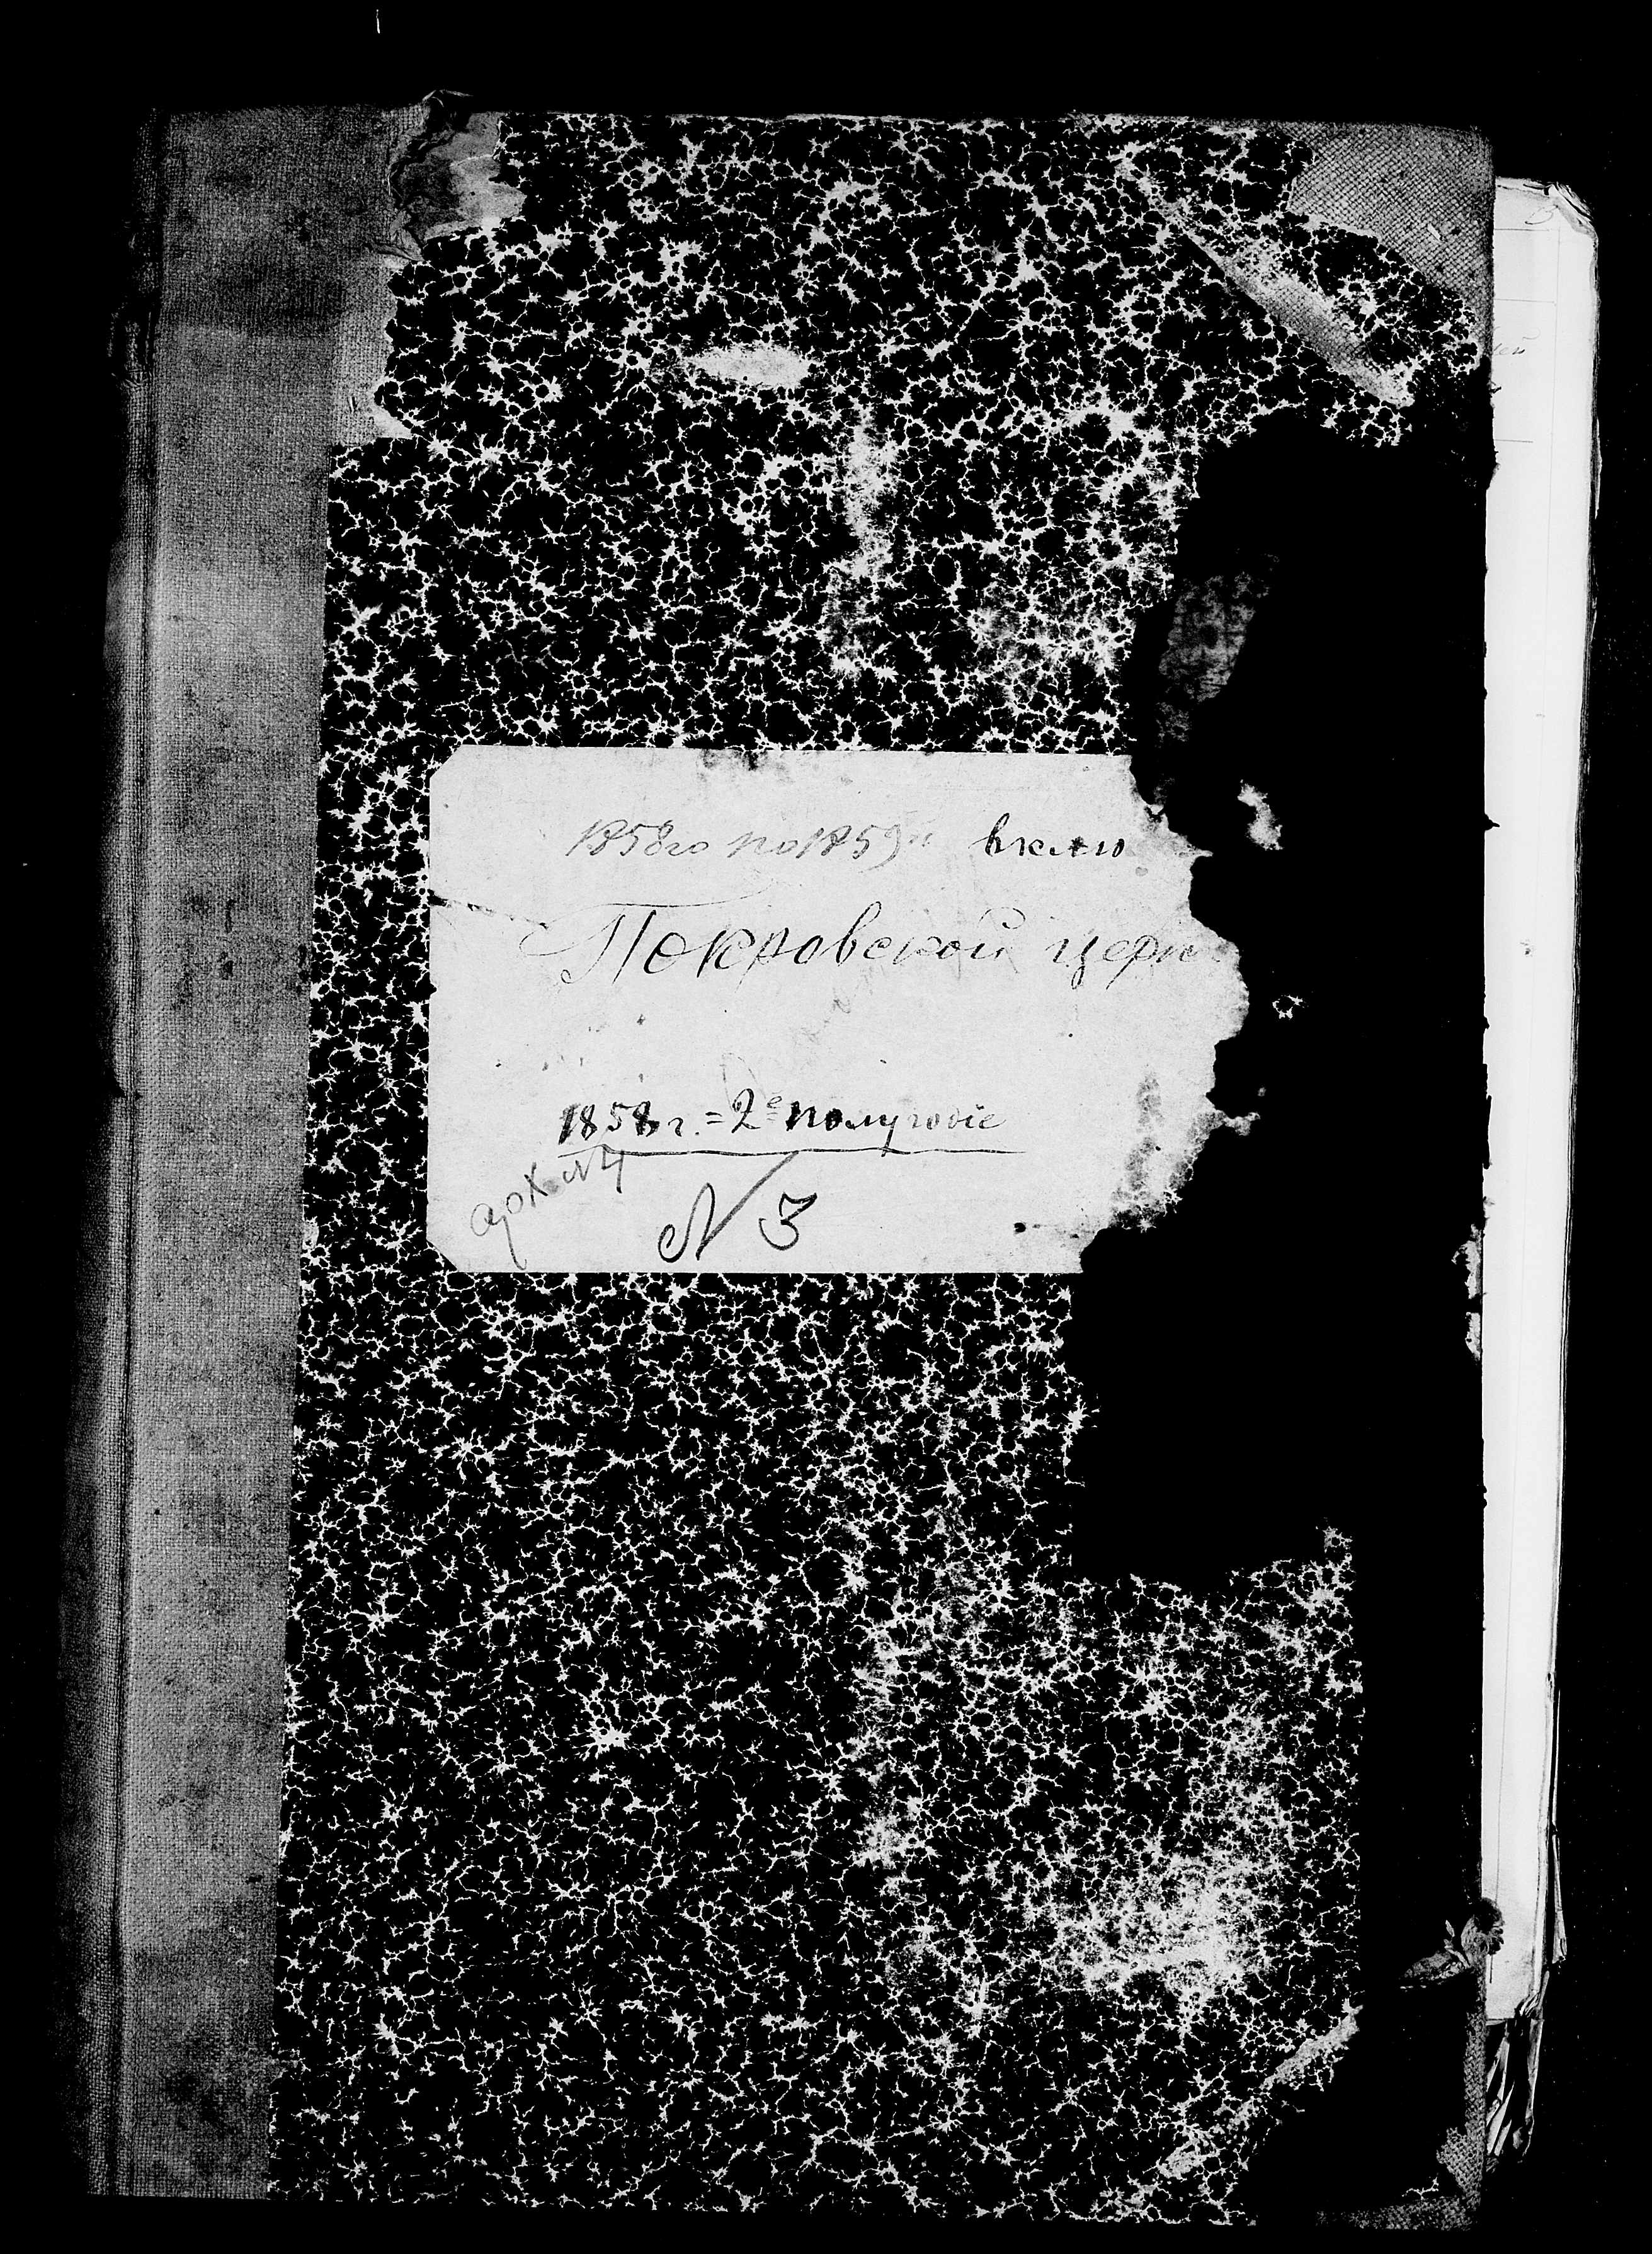 1858го по 1859й вклю
Покровской церк
1858 г. = 2е полугодіе
док. №4
№ 3